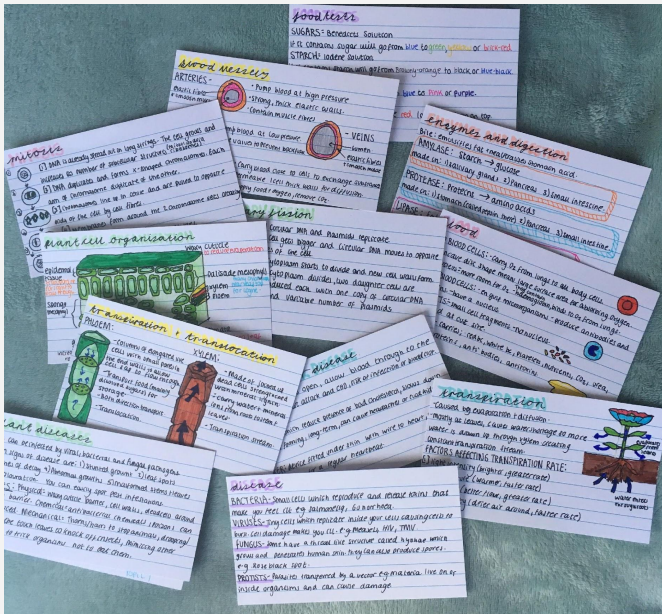 food tests
SUGARS: Benedicts Solution
if it contains sugar will go from blue to green, yellow or brick-red
STARCH: Iodene Solution
starch will go from Browny-orange to black or blue-black.
blue to Pink or Purple.
blood vessels
ARTERIES -
elastic fibres
+ smooth muscle
• Pump blood at high pressure
• Strong, thick elastic walls.
• Contain muscle fibres
blood at low pressure
valves to prevent backflow
VEINS
lumen
elastic fibres
+ smooth muscle
carry blood close to cell to exchange substances
permeable (cell thick walls for diffusion).
food + oxygen, remove CO2.
enzymes and digestion
Bile: emulsifies fat + neutralises stomach acid.
AMYLASE: Starch → glucose
made in: 1) salivary glands, 2) Pancreas, 3) Small intestine
PROTEASE: Proteins → amino acids
made in: 1) stomach (called pepsin there) 2) Pancreas 3) Small intestine
LIPASE:
mitosis
[1] DNA is already spread out in long strings. The cell grows and
increases the number of subcellular structures
[2] DNA duplicates and forms x-shaped chromosomes. Each
arm of chromosome duplicate of the other.
[3] Chromosomes line up in centre and are pulled to opposite
ends of the cell by cell fibres.
membranes form around the 2 chromosome sets
fission
Circular DNA and Plasmids replicate.
cell gets bigger and circular DNA moves to opposite
of the cell
cytoplasm starts to divide and new cell walls form
cytoplasm divides, two daughter cells are
produced each with one copy of circular DNA
and variable number of Plasmids
blood
BLOOD CELLS: carry O2 from lungs to all body cells
disc shape means large surface area for absorbing oxygen.
more room for O2. haemoglobin binds to O2 from lungs.
BLOOD CELLS: engulf microorganisms • Produce antibodies and
have a nucleus.
small cell fragments - no nucleus.
at the site.
carries: red + white bc, platelets, nutrients, CO2, urea,
proteins, antibodies, antitoxins
plant cell organisation
waxy cuticle
to reduce evaporation
epidermal
tissue
palisade mesophyll
xylem
phloem
spongy
mesophyll
transpiration + translocation
PHLOEM:
• columns of elongated live
cells with small pores in
the end walls to allow
cell sap to flow through
• Transport food (mainly
dissolved sugars) for
storage
• Both direction transport
• Translocation
XYLEM:
• Made of joined up
dead cells strengthened
• carry water + mineral
ions from roots to stem +
leaves
• Transpiration Stream
disease
open, allow blood through to the
attack and CHD, risk of infection or blood clot
which reduce presence of bad cholesterol, slows down
forming, long term, can cause headaches or
device fitted under skin with wire to heart
a regular heartbeat
transpiration
• Caused by evaporation + diffusion
• Mostly at leaves, cause water shortage so more
water is drawn up through xylem creating
constant transpiration stream.
FACTORS AFFECTING TRANSPIRATION RATE:
(brighter, greater rate)
(warmer, faster rate)
(better flow, greater rate)
(drier air around, faster rate)
water enters
through roots
plant diseases
can be infected by viral, bacterial and fungal pathogens
signs of disease are: 1) stunted growth 2) leaf spots
of decay 4) abnormal growths 5) malformed stems + leaves
discolouration. You can easily spot pest infections.
Physical: waxy cuticle barrier, cell walls, dead cells around
barrier. Chemical: antibacterial chemicals, poisons (can
Mechanical: Thorns/hairs to stop animals, drooping/
when touch leaves to knock off insects, mimicking other
to trick organisms not to eat them.
disease
BACTERIA - Small cells which reproduce and release toxins that
make you feel ill e.g. salmonella, Gonorrhea.
VIRUSES - Tiny cells which replicate inside your cells causing cells to
burst. Cell damage makes you ill. e.g. measles, HIV, TMV
FUNGUS - Some have a thread like structure called hyphae which
grows and penetrates human skin. they can also produce spores.
e.g. Rose black spot.
PROTISTS - Parasites transferred by a vector e.g. malaria live on or
inside organisms and can cause damage